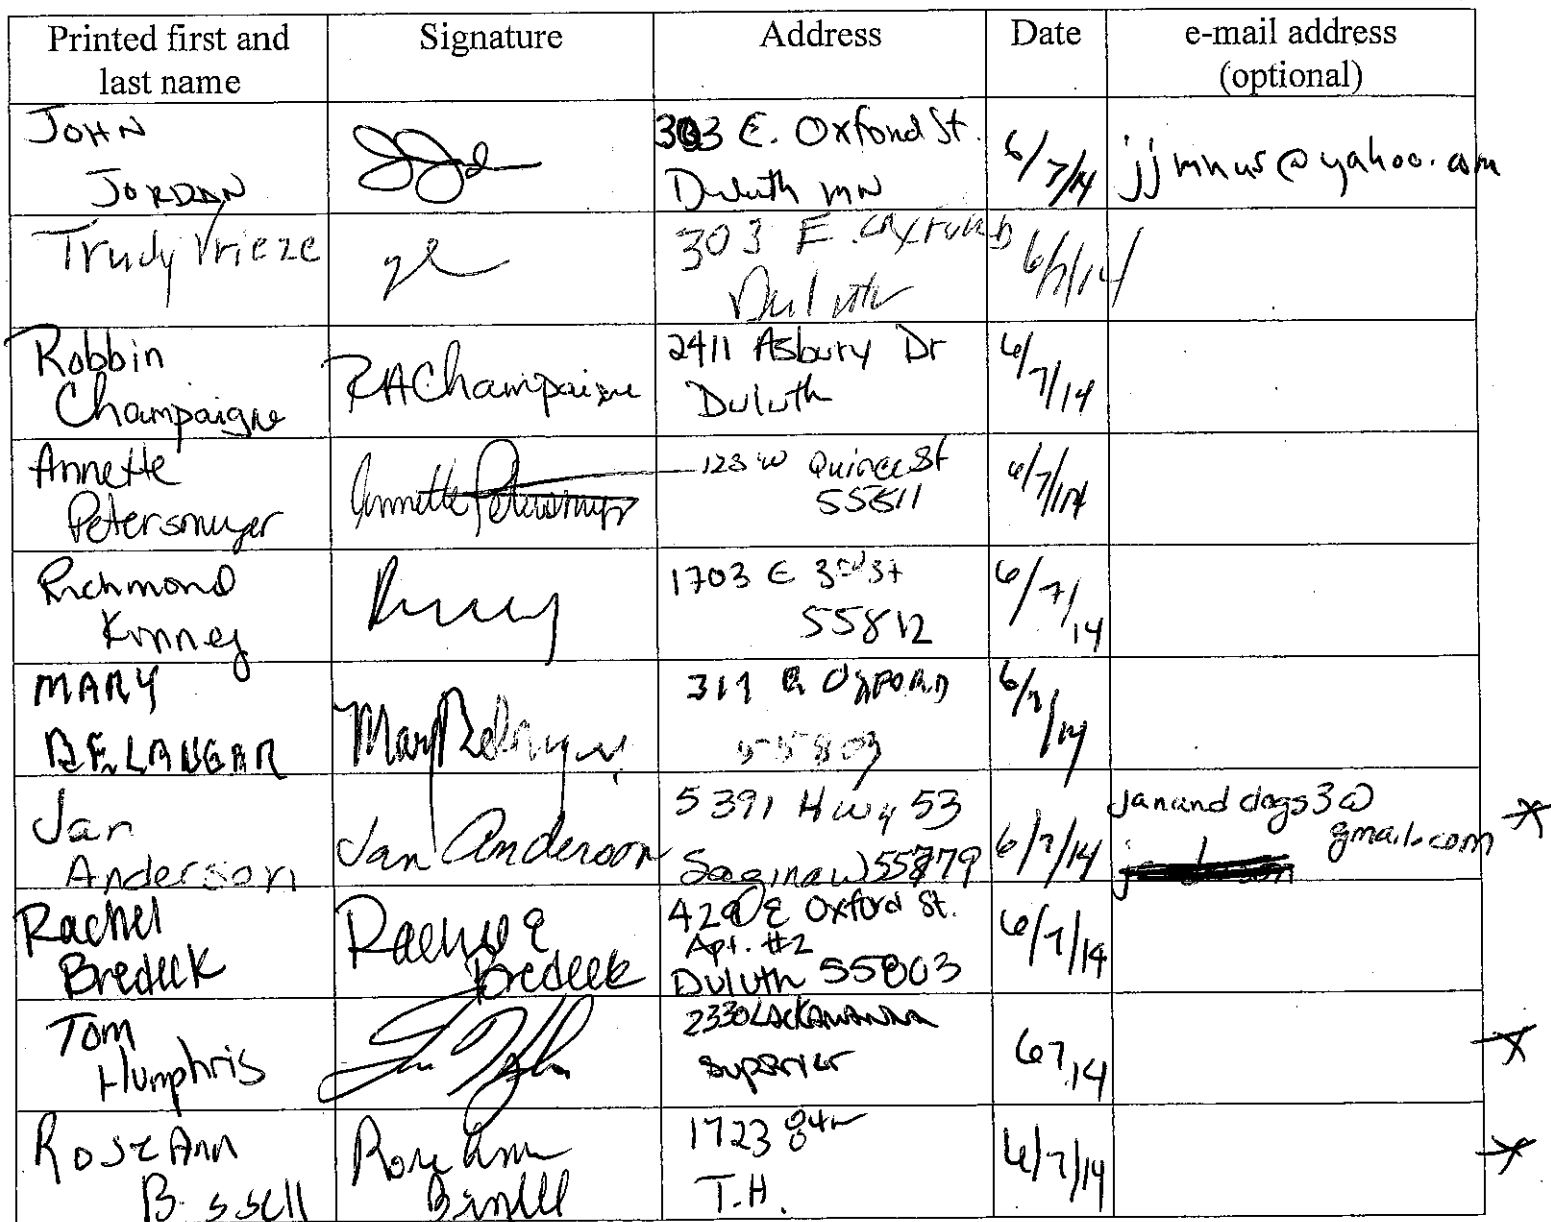 Printed first and last name Signature Address Date e-mail address (optional)
JOHN JORDAN 303 E. Oxford St. Duluth MN 6/7/14 jjmnus@yahoo.com
Trudy Vrieze 303 E. Oxford Duluth 6/7/14
Robbin Champaigne RAChampaigne 2411 Asbury Dr Duluth 6/7/14
Annette Petersmeyer Annette Petersmeyer 123 W Quince St 55811 6/7/14
Richmond Kinney 1703 E 3rd St 55812 6/7/14
MARY BELANGER Mary Belanger OXFORD 55803 6/7/14
Jan Anderson Jan Anderson 5391 Hwy 53 Saginaw 55779 6/7/14 jananddogs3@gmail.com
Rachel Bredeck Rachel E Bredeck 429 E Oxford St. Apt. #2 Duluth 55803 6/7/14
Tom Humphris 2330 LACKAWANNA Superior 6 7 14
RoseAnn Bissell Rose Ann Bissell 1723 T.H. 6/7/14